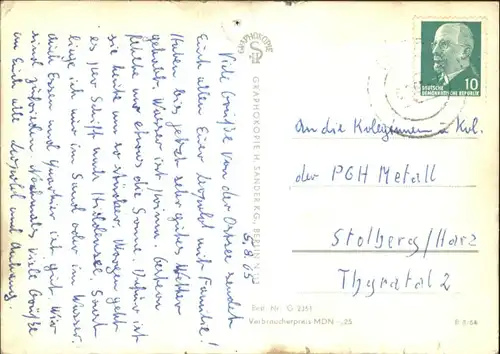 5.8.65
Viele Grüße von der Ostsee sendet
Euch allen Euer Leopold mit Familie!
Haben bis jetzt sehr gutes Wetter
gehabt. Wasser ist prima. Gestern
fehlte nur etwas die Sonne. Dafür ist
sie heute um so stärker. Morgen geht
es per Schiff nach Hiddensee. Sonst
liege ich nur im Sand oder im Wasser.
Auch Essen und Quartier ist gut. Wir
sind zufrieden. Nochmals viele Grüße
an Euch alle Leopold und Anhang.
GRAPHOKOPIE
GRAPHOKOPIE H. SANDER KG., BERLIN
Best. Nr. G 2351
Verbraucherpreis MDN -,25
B 5/64
10
DEUTSCHE
DEMOKRATISCHE REPUBLIK
An die Kolleginnen u. Kol.
der PGH Metall
Stolberg/Harz
Thyratal 2